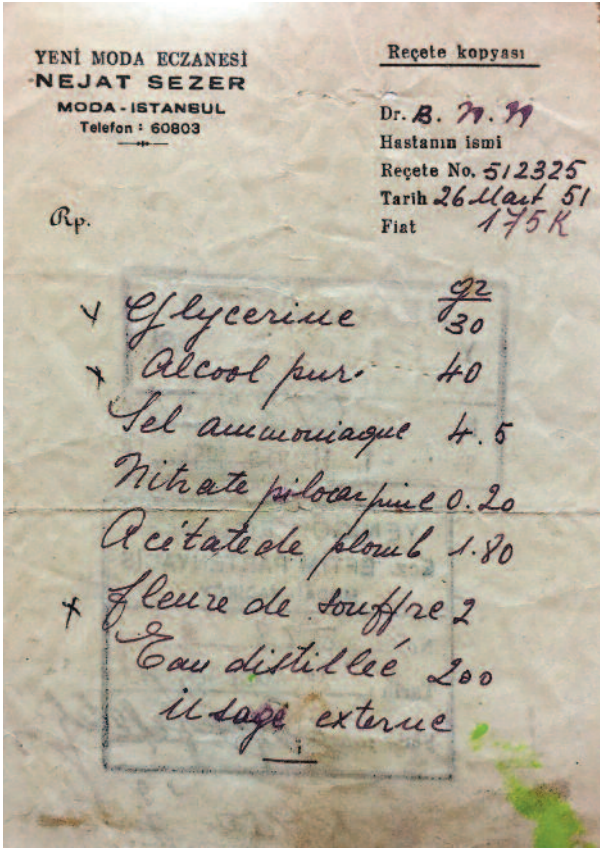 YENİ MODA ECZANESİ
NEJAT SEZER
MODA - ISTANBUL
Telefon : 60803
Reçete kopyası
Dr. B. N. N
Hastanın ismi
Reçete No. 512325
Tarih 26 Mart 51
Fiat 175 K
Rp.
gr
Glycerine 30
Alcool pur. 40
Sel ammoniaque 4.5
Nitrate pilocarpine 0.20
Acétate de plomb 1.80
fleure de souffre 2
Eau distilleé 200
Usage externe